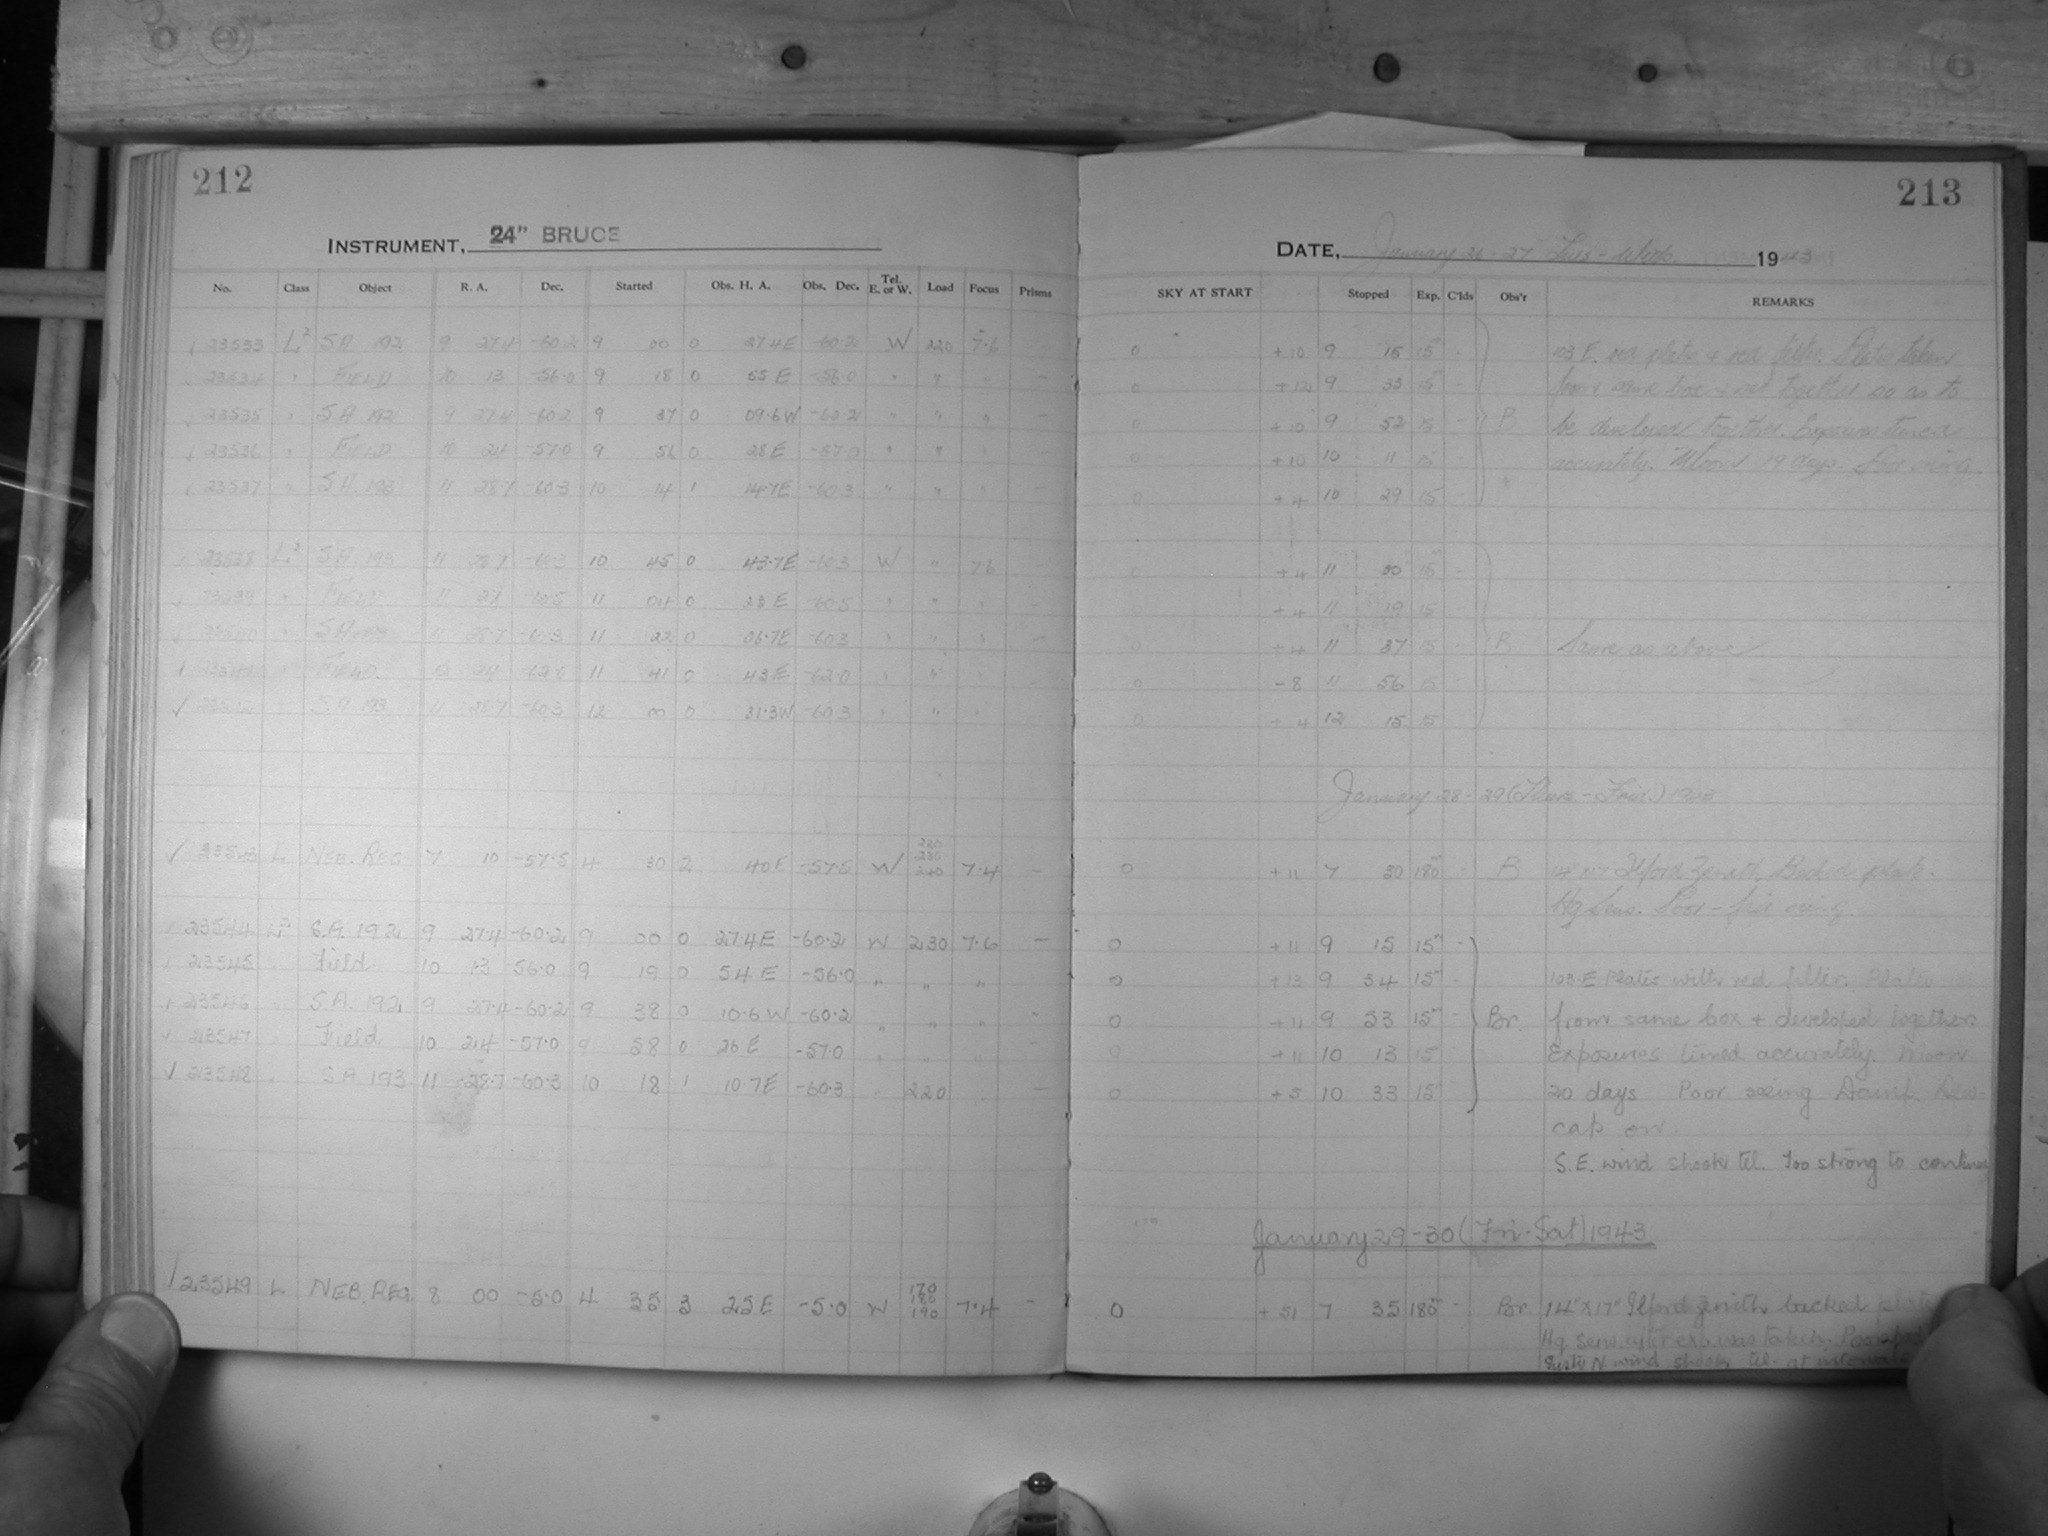 212
INSTRUMENT, 24" BRUCE
No. Class Object R. A. Dec. Started Obs. H. A. Obs. Dec. Tel. E. or W. Load Focus Prisms
23533 L² S.A. 192 9 27.4 -60.2 9 00 0 27.4E -60.2 W 220 7.6 -
23534 " FIELD 10 13 -56.0 9 18 0 55 E -56.0 " " " -
23535 " S.A. 192 9 27.4 -60.2 9 37 0 09.6W -60.2 " " "
23536 " FIELD 10 24 -57.0 9 56 0 28 E -57.0 " " "
23537 " S.A. 193 11 28.7 -60.3 10 14 1 14.7E -60.3 " " "
23538 L² S.A. 193 11 28.7 -60.3 10 45 0 43.7E -60.3 W " 7.6 -
23539 " FIELD 11 24 -60.5 11 04 0 23 E -60.5 " " "
23540 " S.A. 193 11 28.7 -60.3 11 22 0 06.7E -60.3 " " "
23541 " FIELD 12 24 -62.0 11 41 0 43E -62.0 " " "
23542 S.A. 193 11 28.7 -60.3 12 00 0 31.3W -60.3 " "
√ 23543 L NEB. REG 7 10 -57.5 4 30 2 40E -57.5 W 220 230 240 7.4 -
23544 L² S.A. 192 9 27.4 -60.2 9 00 0 27.4E -60.2 W 230 7.6 -
23545 " Field 10 13 -56.0 9 19 0 54 E -56.0 " " "
23546 " S.A. 192 9 27.4 -60.2 9 38 0 10.6W -60.2 " " " -
23547 Field 10 24 -57.0 9 58 0 26 E -57.0 " " " -
√ 23548 " S.A. 193 11 28.7 -60.3 10 18 1 10.7E -60.3 " 220 -
√ 23549 L NEB. REG. 8 00 -5.0 4 35 3 25E -5.0 W 170 180 190 7.4 -
213
DATE, January 26-27 19 43
SKY AT START Stopped Exp. C'lds Obs'r REMARKS
0 +10 9 15 15ᵐ - 103 E. red plates + red filter. Plates taken
0 +12 9 33 15 - from same box + set together so as to
0 +10 9 52 15 - B be developed together. Exposures timed
0 +10 10 11 15 - accurately. Moon 19 days. Poor seeing.
0 +4 10 29 15 -
0 +4 11 00 15 -
0 +4 11 19 15
0 +4 11 37 15 - B Same as above
0 -8 11 56 15 -
0 +4 12 15 15
January 28-29 1943
0 +11 7 30 180ᵐ - B 14" x 17" Ilford Zenith Backed plate.
Hg Sens. Poor - fair seeing.
0 +11 9 15 15ᵐ -
0 +13 9 34 15ᵐ 103-E Plates with red filter. Plates
0 +11 9 53 15ᵐ Br. from same box + developed together
0 +11 10 13 15 Exposures timed accurately. Moon
0 +5 10 33 15ᵐ 20 days Poor seeing Damp. Dew-
cap on
S.E. wind shook tel. Too strong to continue
January 29-30 (Fri-Sat) 1943.
0 +51 7 35 180ᵐ - Br. 14" x 17" Ilford Zenith backed plate
Hg sens. after exp. was taken. Poor
Gusty N wind shook tel. at intervals